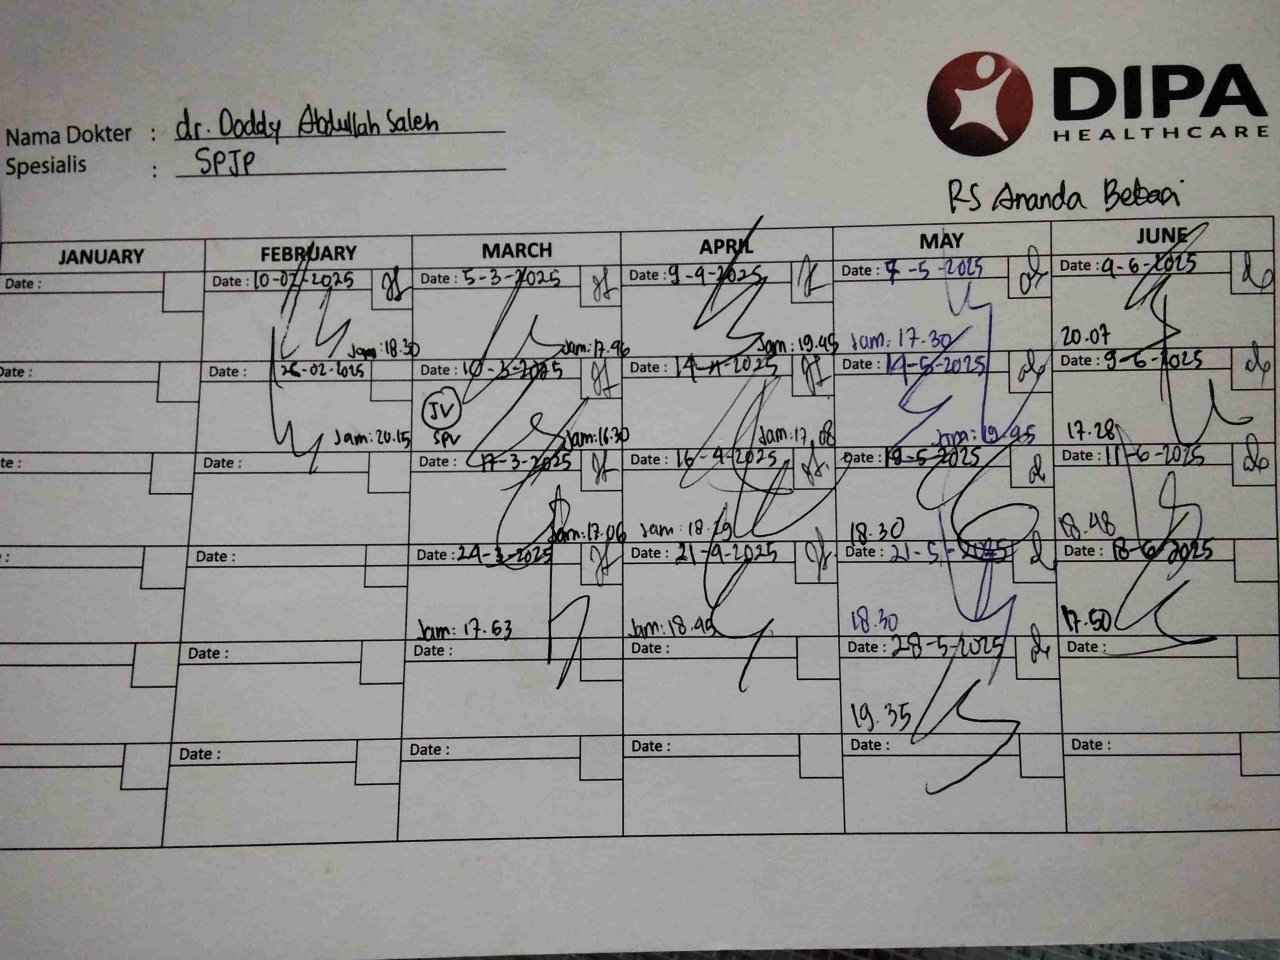 DIPA
HEALTHCARE
Nama Dokter : dr. Doddy Abdullah Saleh
Spesialis : SPJP
RS Ananda Bekasi
JANUARY FEBRUARY MARCH APRIL MAY JUNE
Date : Date : 10-02-2025 Date : 5-3-2025 Date : 9-4-2025 Date : 7-5-2025 Date : 4-6-2025
Jam: 18.30 Jam: 17.46 Jam: 19.45 Jam: 17.30 20.07
Date : Date : 26-02-2025 Date : 10-3-2025 Date : 14-4-2025 Date : 14-5-2025 Date : 9-6-2025
JV
SPV
Jam: 20.15 Jam: 16.30 Jam: 17.08 Jam: 19.45 17.28
te : Date : Date : 17-3-2025 Date : 16-4-2025 Date : 19-5-2025 Date : 11-6-2025
Jam: 17.06 Jam: 18.29 18.30 18.48
: Date : Date : 24-3-2025 Date : 21-4-2025 Date : 21-5-2025 Date : 18-6-2025
Jam: 17.63 Jam: 18.45 18.30 17.50
Date : Date : Date : Date : 28-5-2025 Date :
19.35
Date : Date : Date : Date : Date :